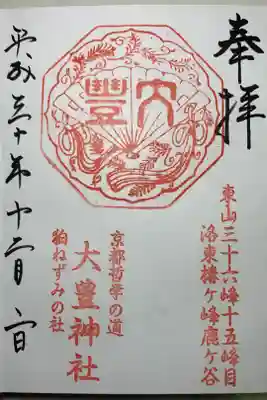 奉拝
東山三十六峰十五峰目
洛東椿ヶ峰鹿ヶ谷
大豊
京都哲学の道
大豊神社
狛ねずみの社
平成三十年十二月一日